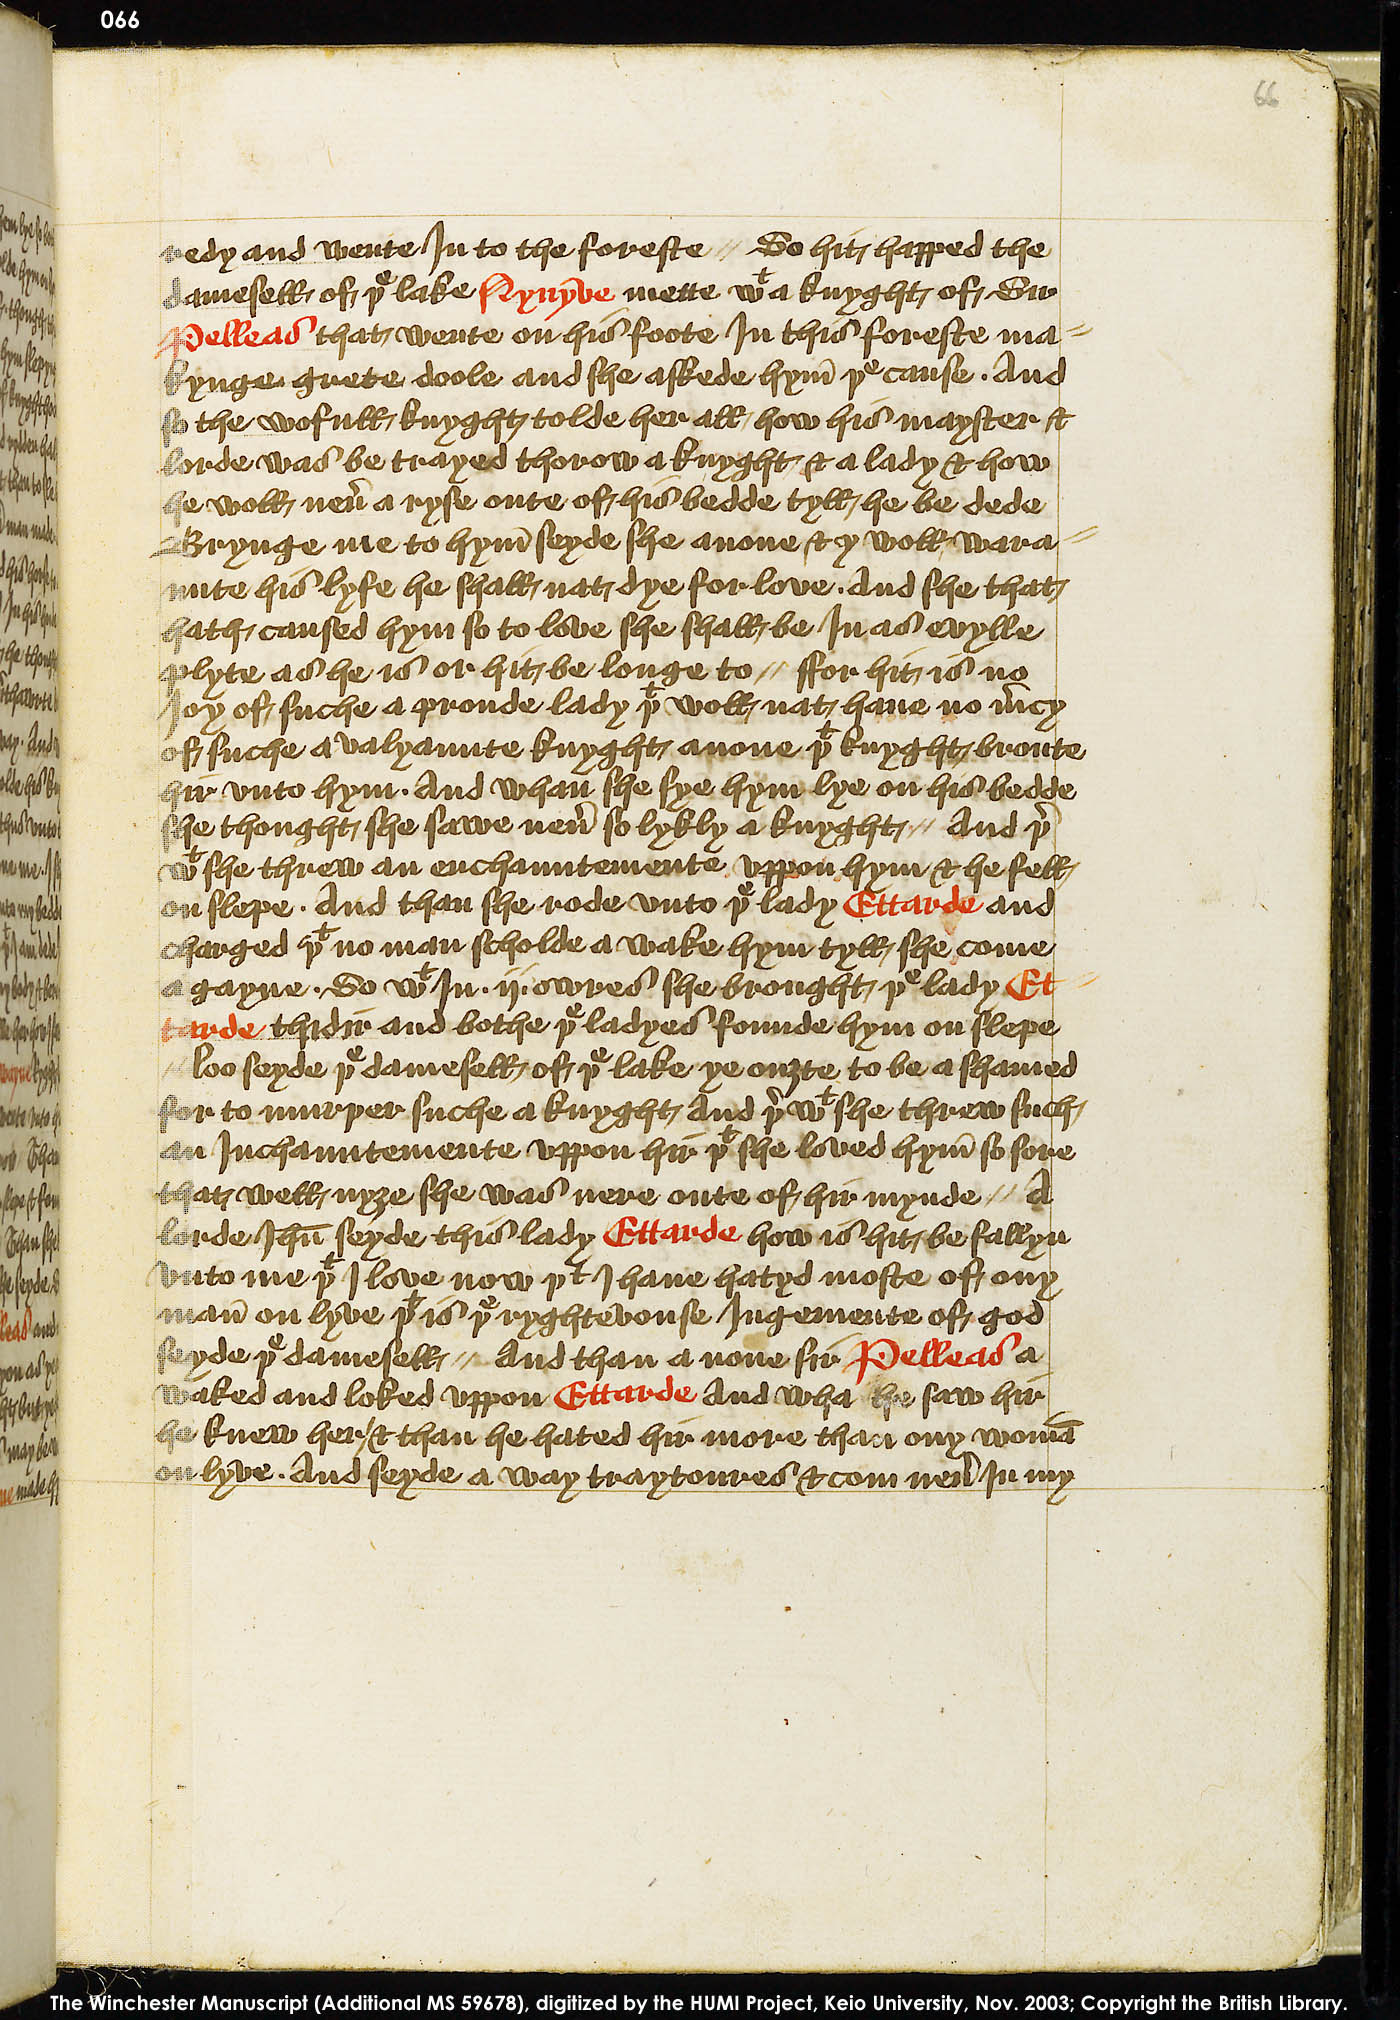 066
66
redy and wente In to the foreste // So hit happed the
damesell of þe lake Nynyve mette wt a knyght of Sir
Pelleas that wente on his foote In this foreste ma=
kynge grete doole and she askede hym̄ þe cause . And
so the wofull knyght tolde her all how his mayster &
lorde was be trayed thorow a knyght & a lady & how
he woll neu̾ a ryse oute of his bedde tyll he be dede
Brynge me to hym̄ seyde she anone & y woll wara=
unte his lyfe he shall nat dye for love . And she that
hath caused hym so to love she shall be In as evylle
plyte as he is or hit be longe to // ffor hit is no
Joy of suche a proude lady þt woll nat haue no m̾cy
of suche a valyaunte knyght anone þt knyght broute
hir vnto hym . And whan she sye hym lye on his bedde
she thought she sawe neu̾ so lykly a knyght // And þ̾
wt she threw an enchauntemente vppon hym & he fell
on slepe . And than she rode vnto þe lady Ettarde and
charged þt no man scholde a wake hym tyll she come
a gayne . So wt In . ij . owres she brought þe lady Et=
tarde thidir and bothe þe ladyes founde hym on slepe
// loo seyde þe damesell of þe lake ye ouȝte to be a shamed
for to murþer suche a knyght And þ̾ wt she threw such
an Inchauntemente vppon hir þt she loved hym̄ so sore
that well nyȝe she was nere oute of hir mynde // A
lorde Jhū seyde this lady Ettarde how is hit be fallyn
vnto me þt I love now þt I haue hatyd moste of ony
man̄ on lyve þt is þe ryghtevouse Jugemente of god
seyde þe damesell // And than a none sir Pelleas a
waked and loked vppon Ettarde And wha he saw hir
he knew her / & than he hated hir more than ony womā
on lyve . And seyde a way traytoures & com neu̾ In my
The Winchester Manuscript (Additional MS 59678), digitized by the HUMI Project, Keio University, Nov. 2003; Copyright the British Library.